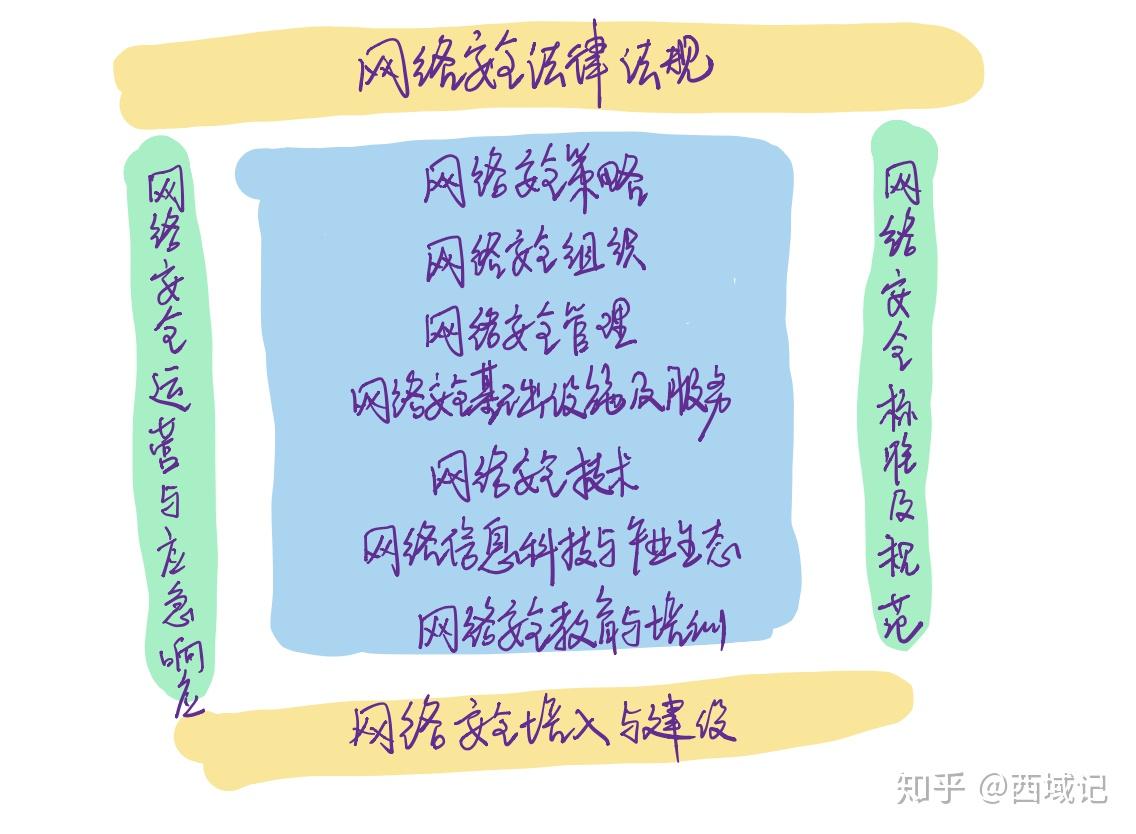 网络安全法律法规
网络安全运营与应急响应
网络安全策略
网络安全组织
网络安全管理
网络安全基础设施及服务
网络安全技术
网络信息科技与产业生态
网络安全教育与培训
网络安全标准及规范
网络安全培入与建设
知乎 @西域记